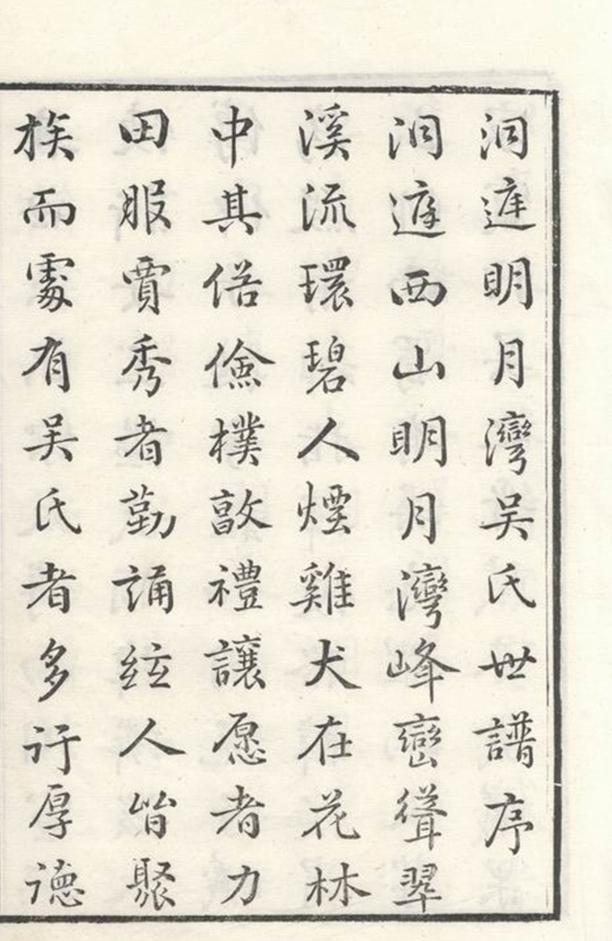 洞庭明月灣吳氏世譜序
洞庭西山明月灣峰巒聳翠
溪流環碧人煙雞犬在花林
中其俗儉樸敦禮讓愿者力
田服賈秀者勤誦絃人皆聚
族而處有吳氏者多行厚德